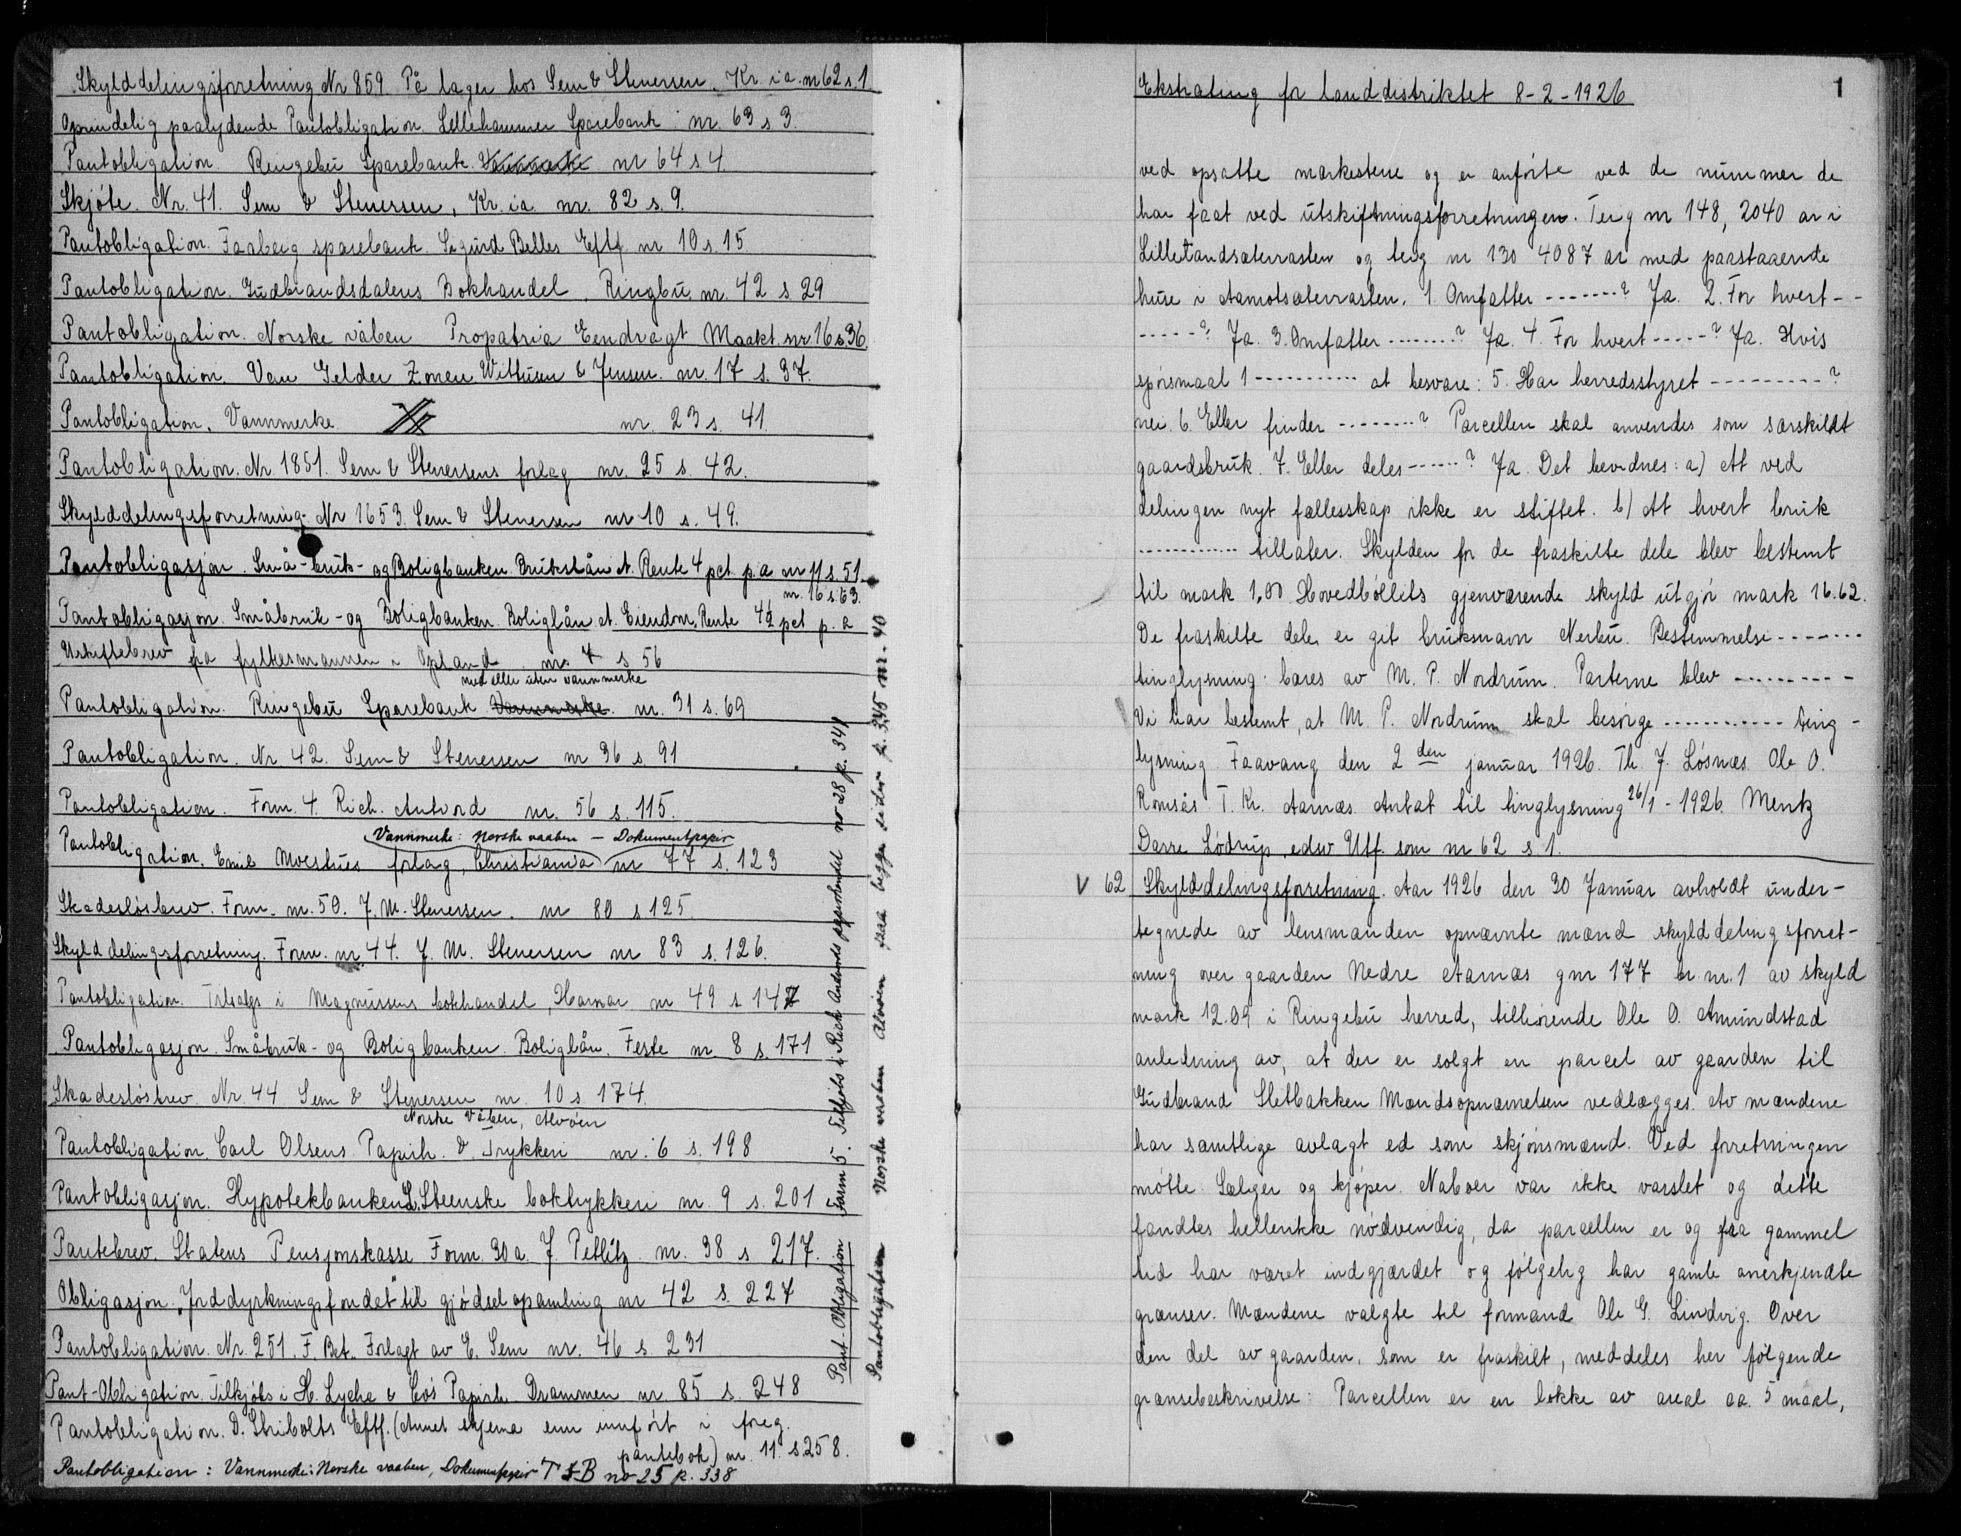 Skylddelingsforretning Nr 859. På lager hos Sem & Stenersen. Kr. ia. nr 62 s. 1
Oprindelig paalydende Pantobligation. Lillehammer Sparebank nr. 63 s 3.
Pantobligation. Ringebu Sparebank. Vannmerke nr 64 s 4.
Skjöte. Nr. 41. Sem & Stenersen, Kr. ia. nr. 82 s. 9.
Pantobligation. Faaberg sparebank. Sigurd Belles Eftf. nr 10 s. 15
Pantobligation. Gudbrandsdalens Bokhandel, Ringbu, nr. 42 s 29
Pantobligation. Norske våben Propatria Eendragt Maakt. nr 16 s. 36.
Pantobligation. Van Gelder Zonen Withusen & Jensen. nr. 17 s. 37.
Pantobligation. Vannmerke nr. 23 s. 41.
Pantobligation. Nr. 1851. Sem & Stenersens forlag nr. 25 s. 42.
Skylddelingsforretning. Nr 1653. Sem & Stenersen nr 10 s. 49.
Pantobligasjon. Små-bruk- og Boligbanken. Brukslån A. Rente 4 pct. p.a nr 11 s. 51.
nr. 16 s. 63.
Pantobligasjon. Småbruk- og Boligbanken. Boliglån A. Eiendom, Rente 4½ pct p. a
Utskiftebrev fra fylkesmannen i Opland nr. 7 s 56
med eller uten vannmerke
Pantobligation. Ringebu Sparebank Vannmerke. nr. 31 s. 69
Pantobligation. Nr 42. Sem & Stenersen nr 36 s. 91
Pantobligation. Form. 4. Rich. Antvord nr. 56 s. 115.
Vannmerke: Norske vaaben – Dokumentpapir
Pantobligation. Emil Moestues forlag, Christiania nr 77 s. 123
Skadeslösbrev. Form. nr. 50. J. M. Stenersen. nr 80 s 125.
Skylddelingsforretning. Form. nr. 44. J. M. Stenersen nr 83 s. 126.
Pantobligation. Tilsalgs i Magnussens bokhandel, Hamar nr 49 s 147
Pantobligasjon. Småbruk- og Boligbanken. Boliglån. Feste nr. 8 s. 171
Skadeslösbrev. Nr. 44 Sem & Stenersen nr. 10 s. 174.
Norske Våben, Alvöen
Pantobligation. Carl Olsens Papirh. & Trykkeri nr. 6 s. 198
Pantobligasjon. Hypotekbanken. S. Steenske boktrykkeri nr. 9 s. 201
Pantebrev. Statens Pensjonskasse Form. 30 a. J. Petlitz nr. 38 s 217.
Obligasjon „Jorddyrkningsfondet" til gjödselopsamling nr 42 s. 227
Pantobligation. Nr. 251. F. Bet. Forlagt av E. Sem nr. 46 s. 231
Pant-Obligation. Tilkjöbs i H. Lyche & Co's Papirh. Drammen nr. 85 s. 248
Pantobligation. D. Stribolts Eftf. (Annet skjema enn innfört i foreg.
pantebok) nr. 11. s. 258.
Pantobligation: Vannmerke: Norske vaaben, Dokumentpapir T & B no 25 p. 338
Pant. Obligation Form 5. Tilkjöbs i Rich. Andvords papirhandel no 28 p. 341
Pantobligation Norske vaaben Alvöen paa begge sider p. 345 nr. 40
Ekstrating for landdistriktet 8-2-1926
1
ved opsatte merkestene og er anförte ved de nummer de
har faat ved utskiftningsforretningen. Teig nr 148, 2040 ar i
Lilletandsæterrasten og teig nr 130 4087 ar med paastaaende
huse i Aamotsæterrasten. 1. Omfatter -------? Ja. 2. For hvert--
-----? Ja. 3. Omfatter -------? Ja. 4. For hvert-----? Ja. Hvis
spörsmaal 1 ----------- at besvare: 5. Har herredsstyret ---------?
nei. 6. Eller finder -------? Parcellen skal anvendes som særskildt
gaardsbruk. 7. Eller deles------? Ja. Det bevidnes: a) At ved
delingen nyt fællesskap ikke er stiftet. b) At hvert bruk
------------ tillater. Skylden for de fraskilte dele blev bestemt
til mark 1,00 Hovedböllets gjenværende skyld utgjör mark 16.62.
De fraskilte dele er git bruksnavn Nerbu. Bestemmelse-------
tinglysning: bæres av M. P. Nordrum. Parterne blev ---------
Vi har bestemt, at M. P. Nordrum skal besörge ----------- ting-
lysning. Faavang den 2den januar 1926. Th. J. Lösnæs. Ole O.
Romsås T. Kr. Aarnæs. Antat til tinglysning 26/1 - 1926. Mentz
Darre Lödrup, edsv. Utf. som nr 62 s 1.
V 62 Skylddelingsforretning. Aar 1926 den 30 Januar avholdt under-
tegnede av lensmanden opnævnte mænd skylddelingsforret-
ning over gaarden Nedre Aarnæs gnr 177 br. nr. 1 av skyld
mark 12.09 i Ringebu herred, tilhörende Ole O. Amundstad
anledning av, at der er solgt en parcel av gaarden til
Gudbrand Sletbakken Mændsopnævnelsen vedlægges. Av mændene
har samtlige avlagt ed som skjönsmænd. Ved forretningen
mötte: Sælger og kjöper. Naboer var ikke varslet og dette
fandtes hellerikke nödvendig, da parcellen er og fra gammel
tid har været indgjærdet og fölgelig har gamle anerkjendte
grænser. Mændene valgte til formand Ole G. Lindvig. Over
den del av gaarden, som er fraskilt, meddeles her fölgende
grænsebeskrivelse: Parcellen er en lökke av areal ca. 5 maal,